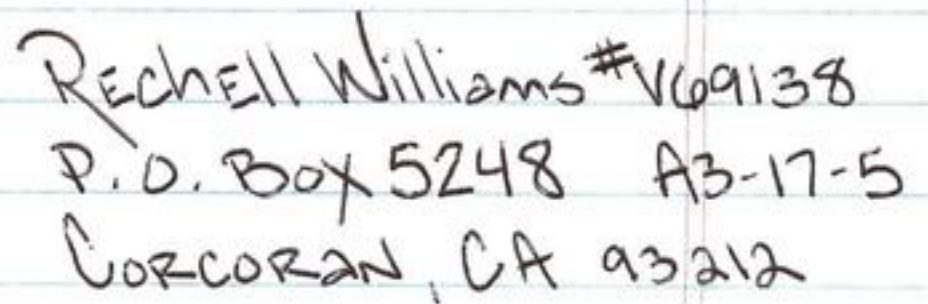 Rechell Williams #V69138
P.O. Box 5248 A3-17-5
Corcoran, CA 93212